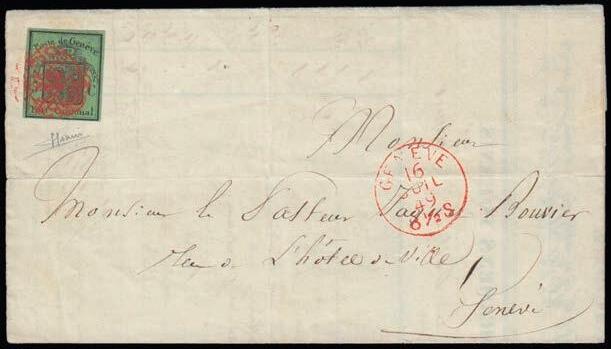 Poste de Genève
Port Cantonal
Monsieur
GENÈVE
16
JUIL
49
6½S
Monsieur le Pasteur Jaques Bouvier
Rue de L'hôtel de Ville
Genève